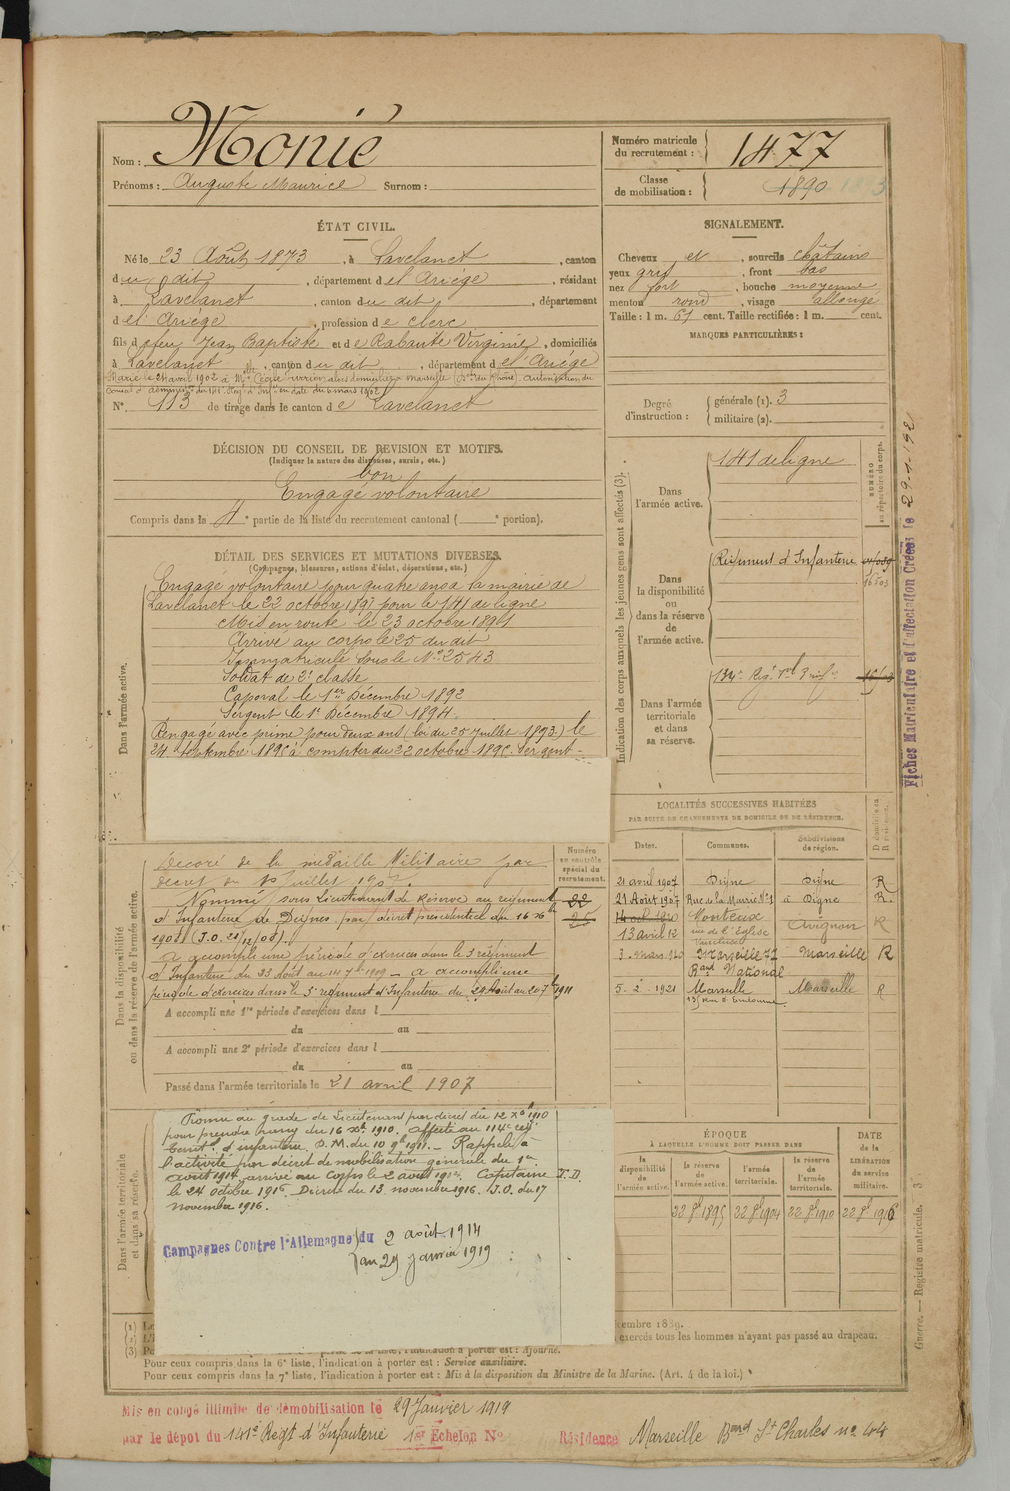 Nom : Monié
Prénoms : Auguste Maurice Surnom :
Numéro matricule du recrutement : 1477
Classe de mobilisation : 1890 1893
ÉTAT CIVIL.
Né le 23 Août 1873, à Lavelanet, canton
du dit, département de l'Ariège, résidant
à Lavelanet, canton du dit, département
de l'Ariège, profession de clerc
fils de feu Jean Baptiste et de Rabauté Virginie, domiciliés
à Lavelanet, canton du dit, département de l'Ariège
Marié le 24 avril 1902 à Mlle domiciliée à Marseille (Bches du Rhône). Autorisation du
Conseil d'adminis. du 141 Régt d'Infie en date du 6 mars 1902
N° 113 de tirage dans le canton de Lavelanet
SIGNALEMENT.
Cheveux et, sourcils châtains
yeux gris, front bas
nez fort, bouche moyenne
menton rond, visage allongé
Taille : 1 m. 61 cent. Taille rectifiée : 1 m. cent.
MARQUES PARTICULIÈRES :
Degré d'instruction : générale (1). 3
militaire (2).
DÉCISION DU CONSEIL DE REVISION ET MOTIFS.
(Indiquer la nature des dispenses, sursis, etc.)
bon
Engagé volontaire
Compris dans la 4e partie de la liste du recrutement cantonal ( e portion).
DÉTAIL DES SERVICES ET MUTATIONS DIVERSES.
(Campagnes, blessures, actions d'éclat, décorations, etc.)
Dans l'armée active.
Engagé volontaire pour quatre ans à la mairie de
Lavelanet le 22 octobre 1891 pour le 141 de ligne
Mis en route le 23 octobre 1891
Arrivé au corps le 25 du dit
Immatriculé sous le N° 2543
Soldat de 2e classe
Caporal le 1er Décembre 1892
Sergent le 1er Décembre 1894
Rengagé avec prime pour deux ans (loi du 25 Juillet 1893) le
24 septembre 1895 à compter du 22 octobre 1895. Sergent -
Indication des corps auxquels les jeunes gens sont affectés (3).
NUMÉRO au répertoire du corps.
Dans l'armée active.
141 de ligne
Dans la disponibilité ou dans la réserve de l'armée active.
Régiment d'Infanterie
Dans l'armée territoriale et dans sa réserve.
Fiches Matriculaire et d'affectation Créées le 29-1-192
LOCALITÉS SUCCESSIVES HABITÉES
PAR SUITE DE CHANGEMENTS DE DOMICILE OU DE RÉSIDENCE.
Dates. Communes. Subdivisions de région. D domicile ou R résidence.
21 avril 1907 Digne Digne R
21 Août 1907 Rue de la Mairie N°1 à Digne R.
14 oct 1910 Monteux Avignon R
13 avril 12 rue de l'Eglise
Vaucluse
3 Mars 1920 Marseille 72 Marseille R
Bard National
5. 2. 1921 Marseille Marseille R
Dans la disponibilité ou dans la réserve de l'armée active.
Numéro au contrôle spécial du recrutement.
Décoré de la médaille Militaire par
décret du 10 Juillet
Nommé sous Lieutenant de Réserve au régiment
d'Infanterie de Dignes par décret présidentiel du 16 Xbre
1908 (J.O. 21/12/08).
a accompli une période d'exercices dans le 3e régiment
d'Infanterie du 23 Août au 14 7bre 1909 - a accompli une
période d'exercices dans le 3e régiment d'Infanterie du 29 Août au 20 7bre 1911
A accompli une 1re période d'exercices dans l
du au
A accompli une 2e période d'exercices dans l
du au
Passé dans l'armée territoriale le 21 avril 1907
Dans l'armée territoriale et dans sa réserve.
Promu au grade de Lieutenant par décret du 12 Xbre 1910
pour prendre rang du 16 Xbre 1910. affecté au 114e régt
territ. d'infanterie D.M. du 10 9bre 1911. - Rappelé à
l'activité par décret de mobilisation générale du 1er
août 1914 arrivé au corps le 2 août 1914. Capitaine T.D.
le 24 octobre 1916. Décret du 13 novembre 1916. J.O. du 17
novembre 1916.
Campagnes Contre l'Allemagne du 2 août 1914
au 29 janvier 1919
ÉPOQUE
À LAQUELLE L'HOMME DOIT PASSER DANS
DATE de la LIBÉRATION du service militaire.
la disponibilité de l'armée active. la réserve de l'armée active. l'armée territoriale. la réserve de l'armée territoriale.
22 8bre 1895 22 8bre 1904 22 8bre 1910 22 8bre 1916
(1)
(2)
(3)
cembre 1889.
exercés tous les hommes n'ayant pas passé au drapeau.
liste, l'indication à porter est : Ajourné.
Pour ceux compris dans la 6e liste, l'indication à porter est : Service auxiliaire.
Pour ceux compris dans la 7e liste, l'indication à porter est : Mis à la disposition du Ministre de la Marine. (Art. 4 de la loi.)
Guerre. — Registre matricule. 3
Mis en congé illimité de démobilisation le 29 Janvier 1919
par le dépot du 141e Régt d'Infanterie 1er Echelon N° Résidence Marseille Bard St Charles no 44